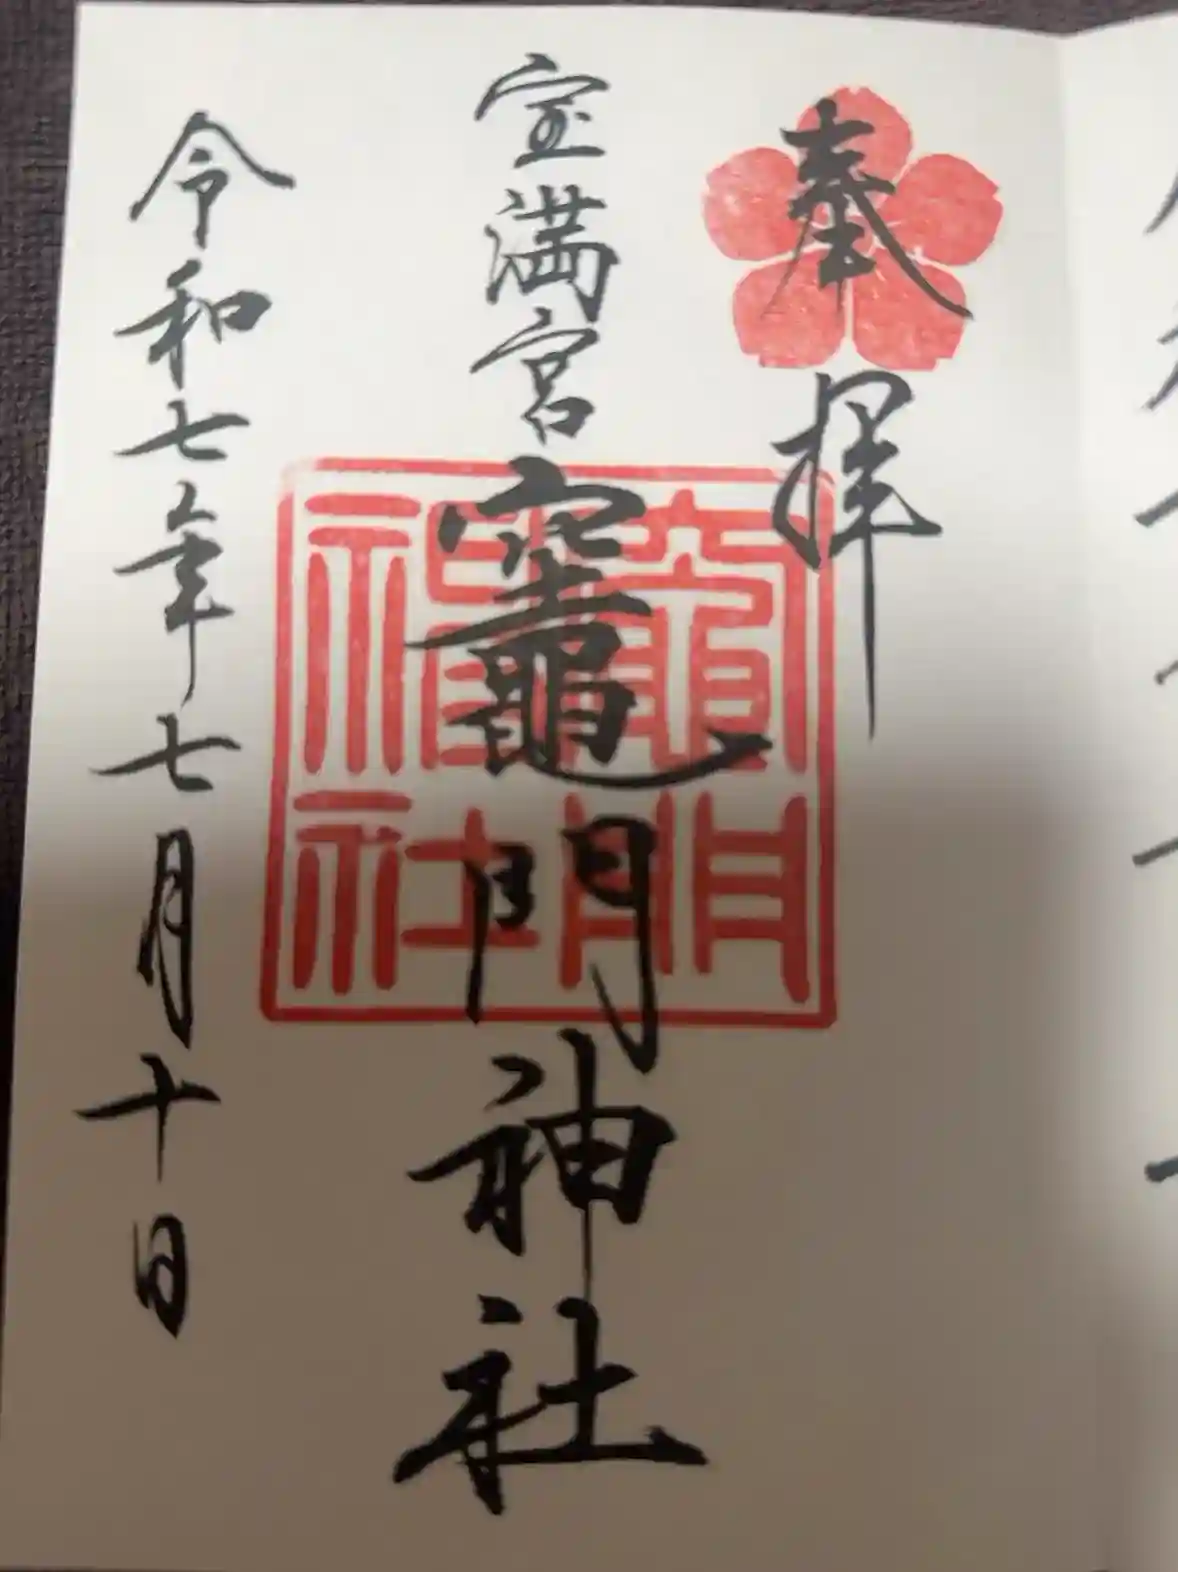 奉拝
宝満宮竈門神社
竈門神社
令和七年七月十日